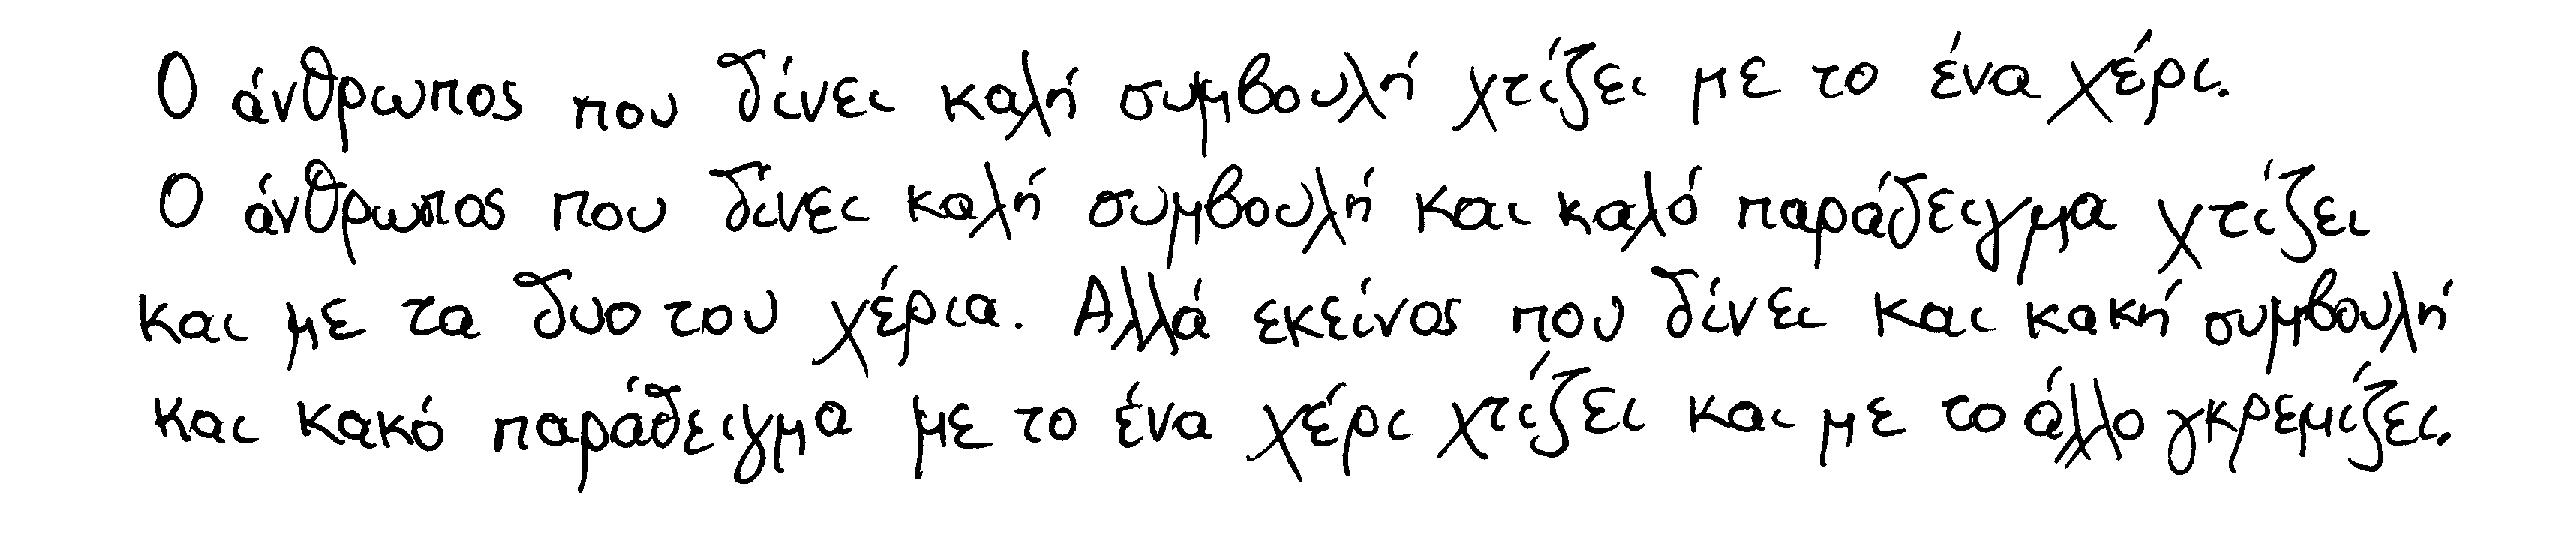 Ο άνθρωπος που δίνει καλή συμβουλή χτίζει με το ένα χέρι.
Ο άνθρωπος που δίνει καλή συμβουλή και καλό παράδειγμα χτίζει
και με τα δυο του χέρια. Αλλά εκείνος που δίνει και κακή συμβουλή
και κακό παράδειγμα με το ένα χέρι χτίζει και με το άλλο γκρεμίζει.